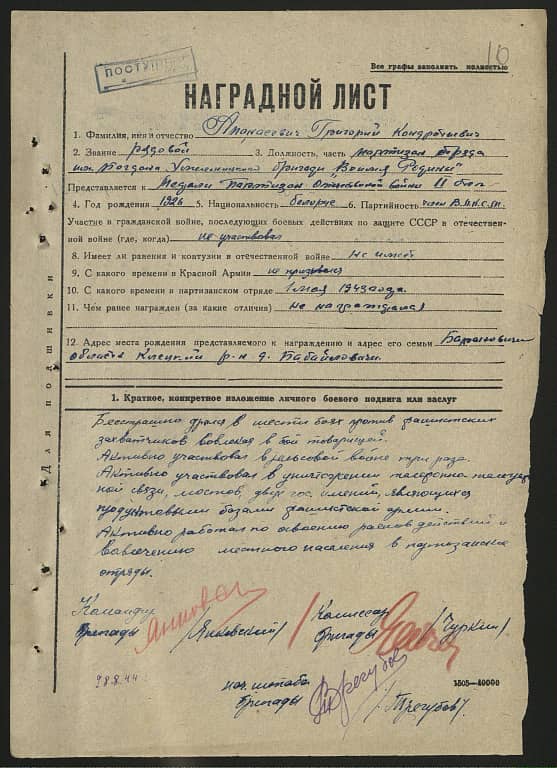 10
ПОСТУПИЛО
Все графы заполнять полностью
НАГРАДНОЙ ЛИСТ
1. Фамилия, имя и отчество Апанасевич Григорий Кондратьевич
2. Звание рядовой 3. Должность, часть партизан отряда
им. бригады Родину"
Представляется к Медали партизан отечественной войны II степ.
4. Год рождения 1926 5. Национальность белорус 6. Партийность член В.Л.К.С.М.
Участие в гражданской войне, последующих боевых действиях по защите СССР в отечествен-
ной войне (где, когда) не участвовал
8. Имеет ли ранения и контузии в отечественной войне не имеет
9. С какого времени в Красной Армии не призывался
10. С какого времени в партизанском отряде 1 мая 1943 года.
11. Чем ранее награжден (за какие отличия) не награждался
12. Адрес места рождения представляемого к награждению и адрес его семьи Баранович
область Клецкий р-н д. Бабаевичи
Для подшивки
1. Краткое, конкретное изложение личного боевого подвига или заслуг
Бесстрашно дрался в шести боях против фашистских
захватчиков вовлекая в бой товарищей.
Активно участвовал в рельсовой войне три раза.
Активно участвовал в уничтожении телефонно-телеграф
ной связи, мостов, двух гос. имений, являющихся
продуктовыми базами фашистской армии.
Активно работал по освоению действий и
вовлечению местного населения в партизанские
отряды.
Командир бригады /Янковский/
Комиссар бригады /Чуркин/
нач. штаба бригады /Трегубов/
1505—40000